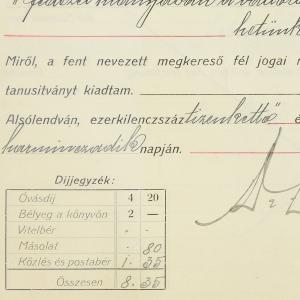 hetünk
Miről, a fent nevezett megkereső fél jogai
tanusítványt kiadtam.
Alsólendván, ezerkilenczszáztizenkettő é
harminczadik napján.
Díjjegyzék:
Óvásdíj 4 20
Bélyeg a könyvön 2 —
Vitelbér - -
Másolat - 80
Közlés és postabér 1 . 35
Összesen 8 . 35